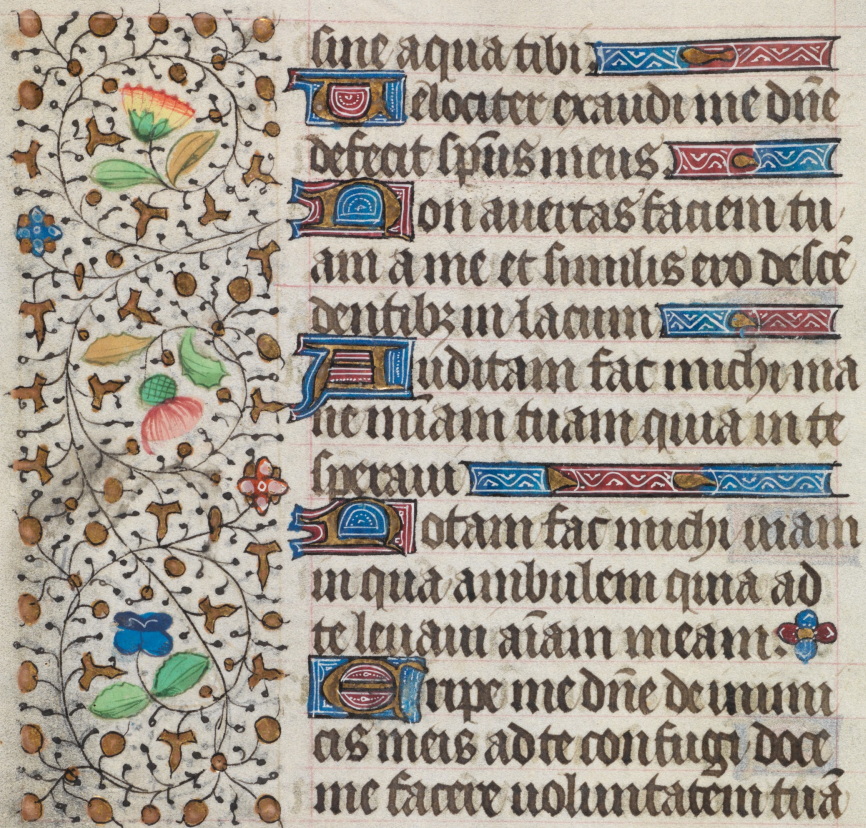 sine aqua tibi
Velociter exaudi me dn̄e
defecit sp̄us meus
Non auertas faciem tu
am a me et similis ero descē
dentibꝫ in lacum
Auditam fac michi ma
ne m̄iam tuam quia in te
speraui
Notam fac michi uiam
in qua ambulem quia ad
te leuaui aīam meam.
Eripe me dn̄e de inimi
cis meis ad te confugi doce
me facere uoluntatem tuā